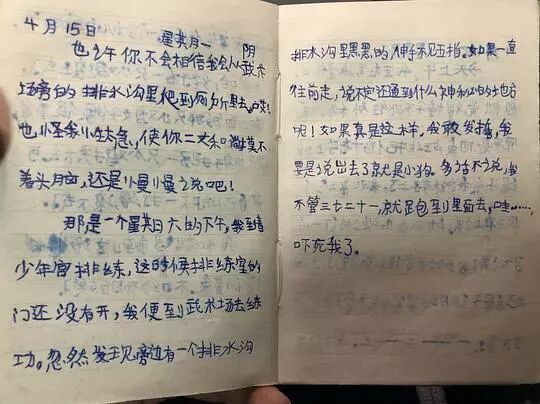 4月15日 星期一 阴
也许你不会相信我会从武术
场旁的排水沟里爬到厕所里去。哎!
也怪我心太急,使你二丈和尚摸不
着头脑,还是慢慢说吧!
那是一个星期六的下午,我到
少年宫排练,这时候排练室的
门还没有开,我便到武术场去练
功。忽然发现旁边有一个排水沟
排水沟里黑黑的,伸手不见五指。如果一直
往前走,说不定还通到什么神秘的地方
呢!如果真是这样,我敢发誓,我
要是说出去了就是小狗。多话不说,我
不管三七二十一,就跑到里面去,哇……
吓死我了。